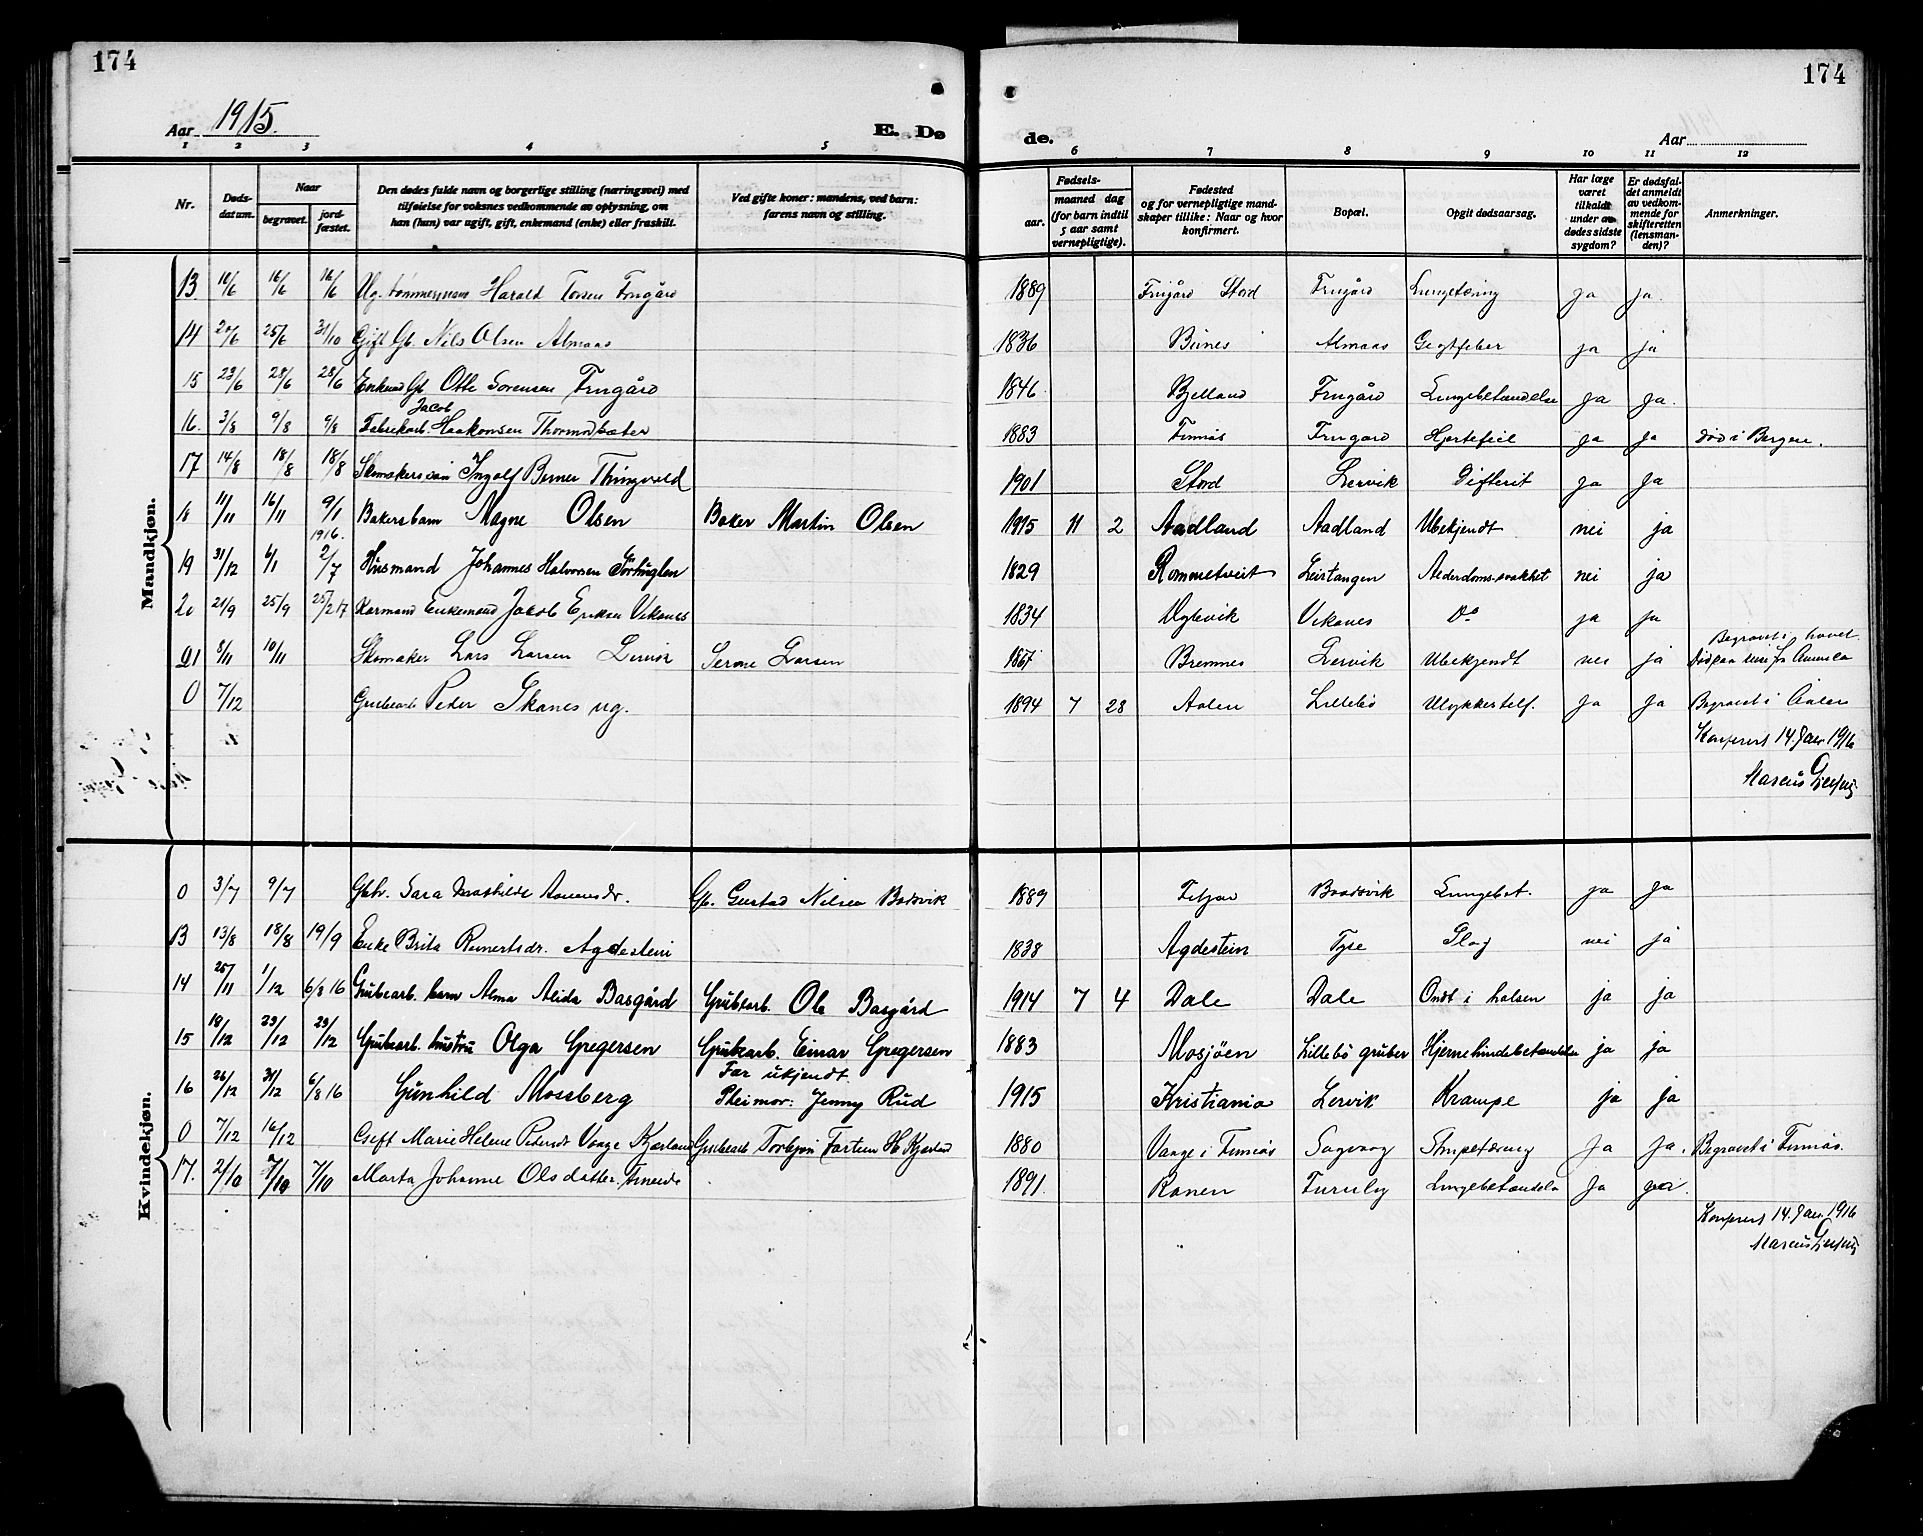 174
174
Aar 1915.
E. Dø
de.
Aar
1 2 3 4 5
6 7 8 9 10 11 12
Nr.
Dødsdatum.
Naar
begravet.
jordfæstet.
Den dødes fulde navn og borgerlige stilling (næringsvei) med
tilføielse for voksnes vedkommende av oplysning, om
han (hun) var ugift, gift, enkemand (enke) eller fraskilt.
Ved gifte koner: mandens, ved barn:
farens navn og stilling.
Fødsels-
aar.
maaned dag
(for barn indtil
5 aar samt
vernepligtige).
Fødested
og for vernepligtige mandskaper tillike: Naar og hvor
konfirmert.
Bopæl.
Opgit dødsaarsag.
Har læge
været
tilkaldt
under av
dødes sidste
sygdom?
Er dødsfaldet anmeldt
av vedkommende for
skifteretten
(lensmanden)?
Anmerkninger.
Mandkjøn.
13 10/6 16/6 16/6 Ug. tømmermann Harald Torsen Frugård 1889 Frugård Stord Frugård Lungetæring ja ja.
14 20/6 25/6 31/10 Gift Gb. Nils Olsen Almaas 1836 Almaas Gigtfeber ja ja
15 23/6 28/6 28/6 Enkem Gb Otte Sorensen Frugård 1846 Bjelland Frugård Lungebetændelse ja ja.
16. 3/8 9/8 9/8 Fabrikarb. Jacob Haakonsen Thormodsæter 1883 Finnås Frugård Hjertefeil ja ja død i Bergen.
17 14/8 18/8 18/8 Skomakersvein Ingolf Berner Thingvold 1901 Stord Lervik Difterit ja ja
18 11/11 16/11 9/1 1916. Bakersbarn Magne Olsen Baker Martin Olsen 1915 11 2 Aadland Aadland Ubekjendt nei ja
19 31/12 6/1 2/7 Husmand Johannes Halvorsen Sörhuglen 1829 Rommetveit Leirtangen Alderdomssvakhet nei ja
20 21/9 25/9 25/2 17 Kaarmand Enkemand Jakob Eriksen Vikanes 1834 Uglevik Vikanes Do ja ja
21 8/11 10/11 Skomaker Lars Larsen Lervik Serine Larsen 1867 Bremnes Lervik Ubekjendt nei ja Begravet i havet. Död paa reise fra Amerika
0 7/12 Grubearb Peder Skanes ug. 1894 7 28 Aalen Lillebö Ulykkestilf. ja ja Begravet i Ålen
Konferert 14. Jan 1916
Marcus Gjessing
Kvindekjøn.
0 3/7 9/7 Gbhr. Sara Mathilde Aamundsdr. Gb. Gustad Nilsen Bodsvik 1889 Fitjar Baadsvik Lungebet. ja ja
13 13/8 18/8 19/9 Enke Brita Reinertsdr. Agdestein 1838 Agdestein Tyse Slag nei ja
14 25/11 1/12 6/8 16 Grubearb. barn Alma Alida Basgård Grubearb. Ola Basgård 1914 7 4 Dale Dale Ondt i halsen ja ja
15 18/12 23/12 23/12 Grubearb. hustru Olga Gregersen Grubearb. Einar Gregersen 1883 Mosjöen Lillebö gruber Hjernehindebetændelse ja ja
16 26/12 31/12 6/8 16 Gunhild Mossberg Far ukjendt. Pleimor: Jenny Rud 1915 Kristiania Lervik Krampe ja ja
0 7/12 16/12 Gift Marie Helene Pedersdr Vaage Kjærland Grubearb Torbjön Forteen H. Kjærland 1880 Vaage i Finnås Sagvaag Strupetæring ja ja. Begravet i Finnås.
17. 2/10 7/10 7/10 Marta Johanne Olsdatter 1891. Ranen Furuly Lungebetændelse ja ja.
Konferert 14. Jan. 1916
Marcus Gjessing